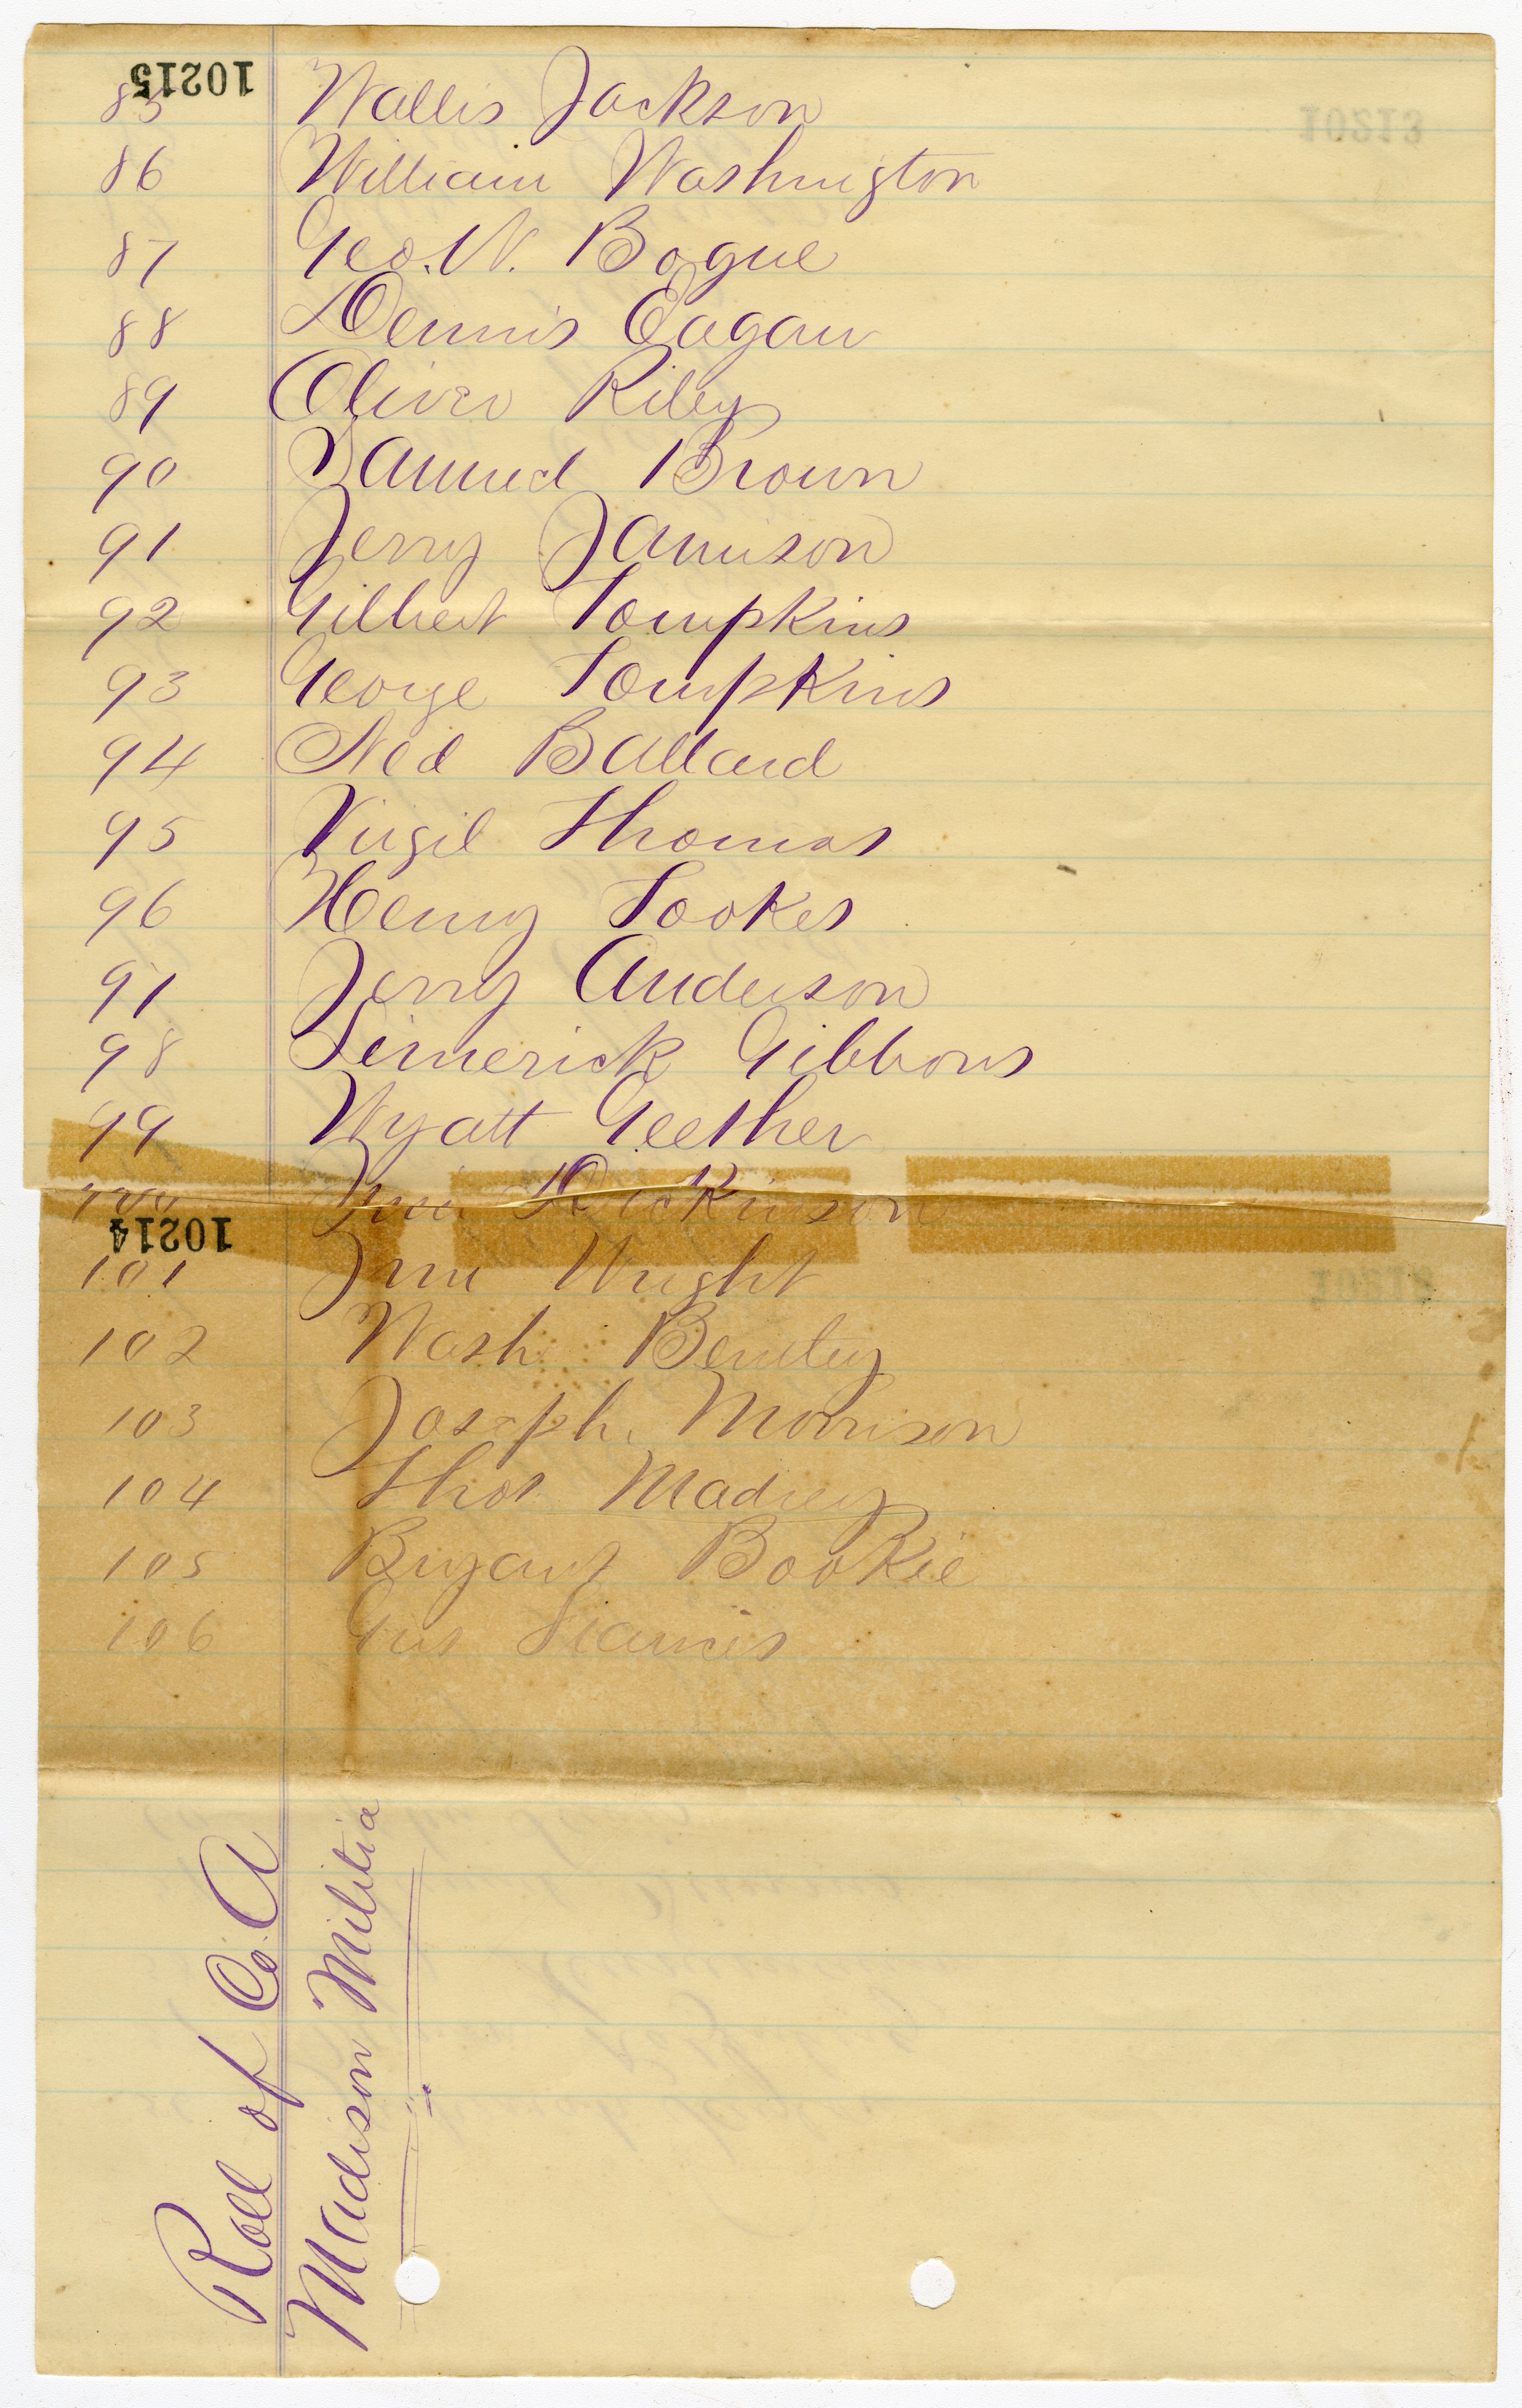 10215
85 Wallis Jackson
86 William Washington
87 Geo. W. Bogue
88 Dennis Eagan
89 Oliver Riley
90 Samuel Brown
91 Jerry Jamison
92 Gilbert Tompkins
93 George Tompkins
94 Ned Ballard
95 Virgil Thomas
96 Henry Tookes
97 Jerry Anderson
98 Limerick Gibbons
99 Wyatt Geether
100 Dickinson
10214
101 Jim Wright
102 Wash Bentley
103 Joseph. Morrison
104 Thos Madrey
105 Bryant Bookie
106 Gus
Roll of Co. A
Madison Militia
10213